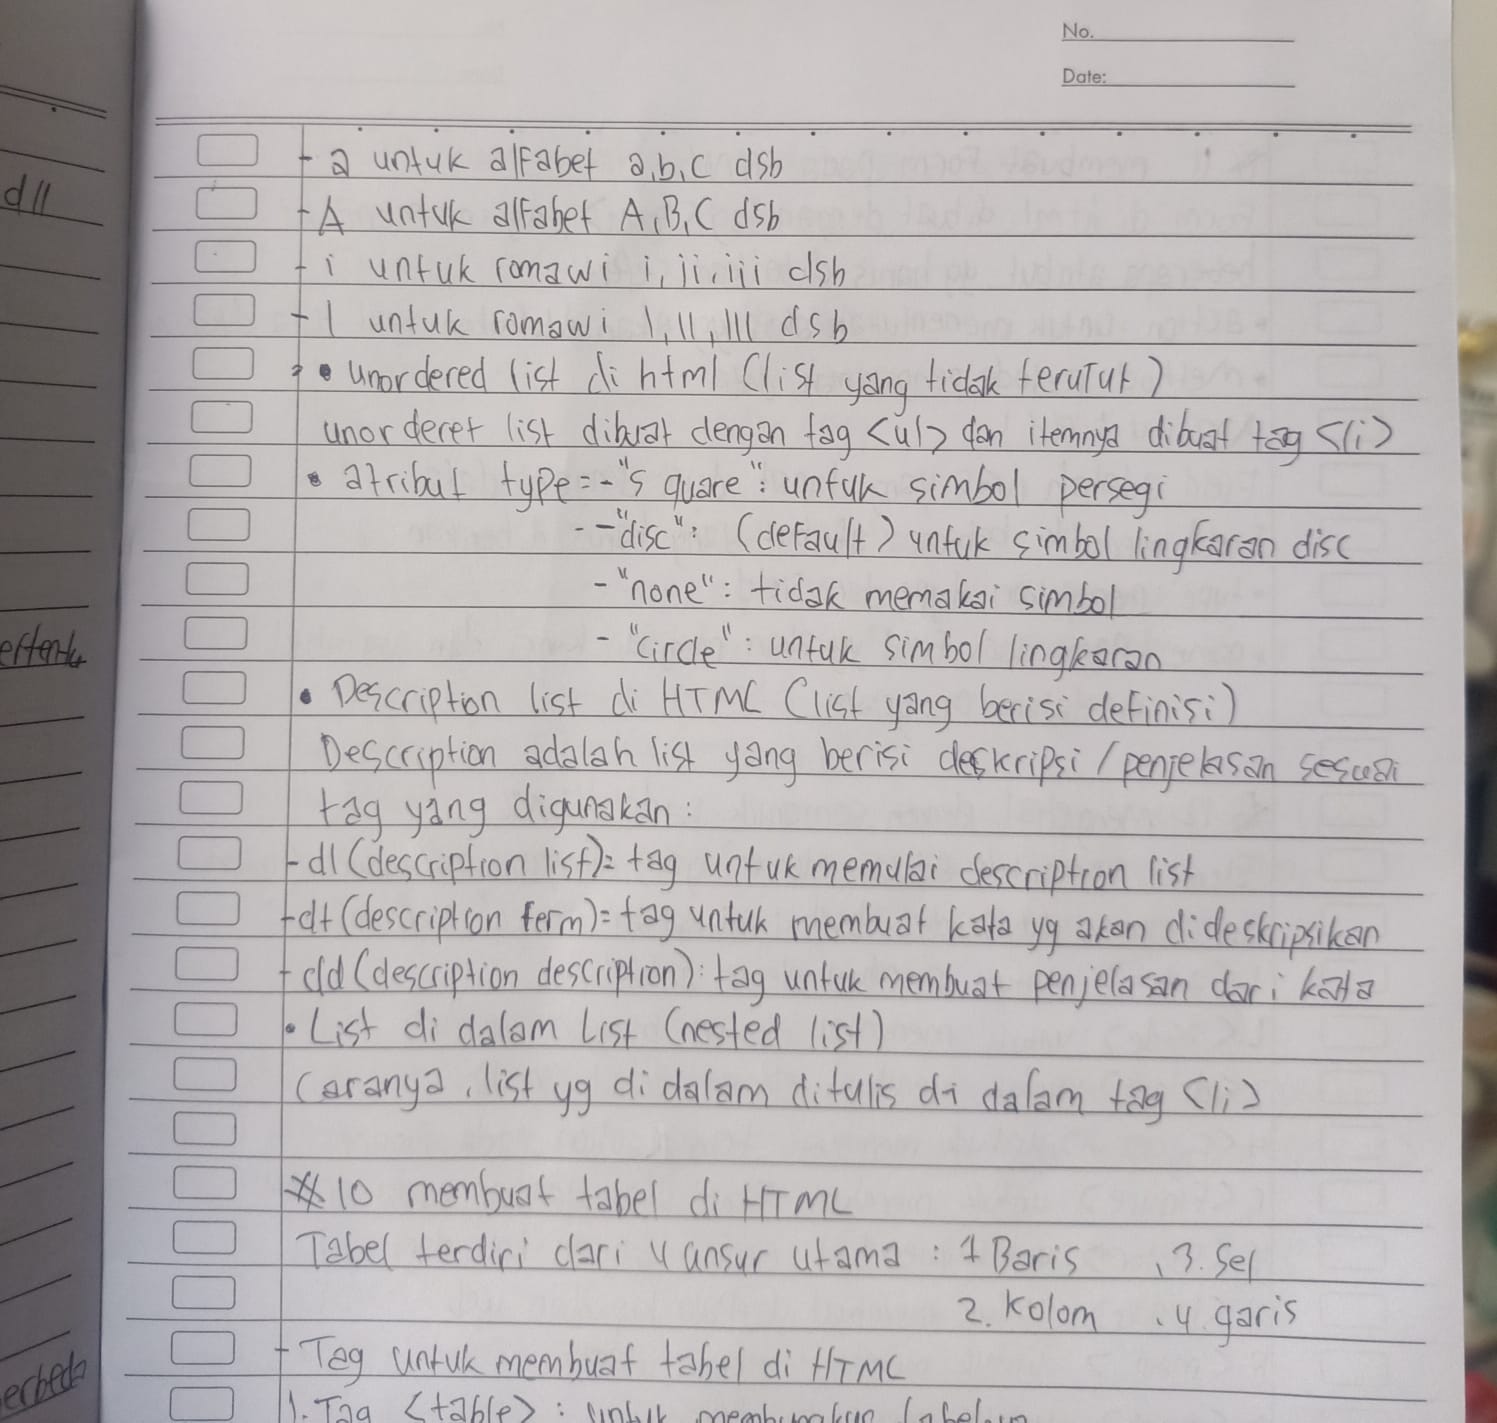 No.
Date:
- a untuk alfabet a,b,c dsb
- A untuk alfabet A,B,C dsb
- i untuk romawi i, ii, iii dsb
- I untuk romawi I, II, III dsb
• unordered list di html (list yang tidak terurut)
unorderet list dibuat dengan tag <ul> dan itemnya dibuat tag <li>
• atribut type = - "square" : untuk simbol persegi
- "disc" : (default) untuk simbol lingkaran disc
- "none" : tidak memakai simbol
- "circle" : untuk simbol lingkaran
• Description list di HTML (list yang berisi definisi)
Description adalah list yang berisi deskripsi / penjelasan sesuai
tag yang digunakan :
- dl (description list) = tag untuk memulai description list
- dt (description term) = tag untuk membuat kata yg akan dideskripsikan
- dd (description description) : tag untuk membuat penjelasan dari kata
• List di dalam List (nested list)
Caranya, list yg di dalam ditulis di dalam tag <li>
# 10 membuat tabel di HTML
Tabel terdiri dari 4 unsur utama : 1 Baris , 3. Sel
2. Kolom , 4 garis
- Tag untuk membuat tabel di HTML
1. Tag <table> : untuk
dll